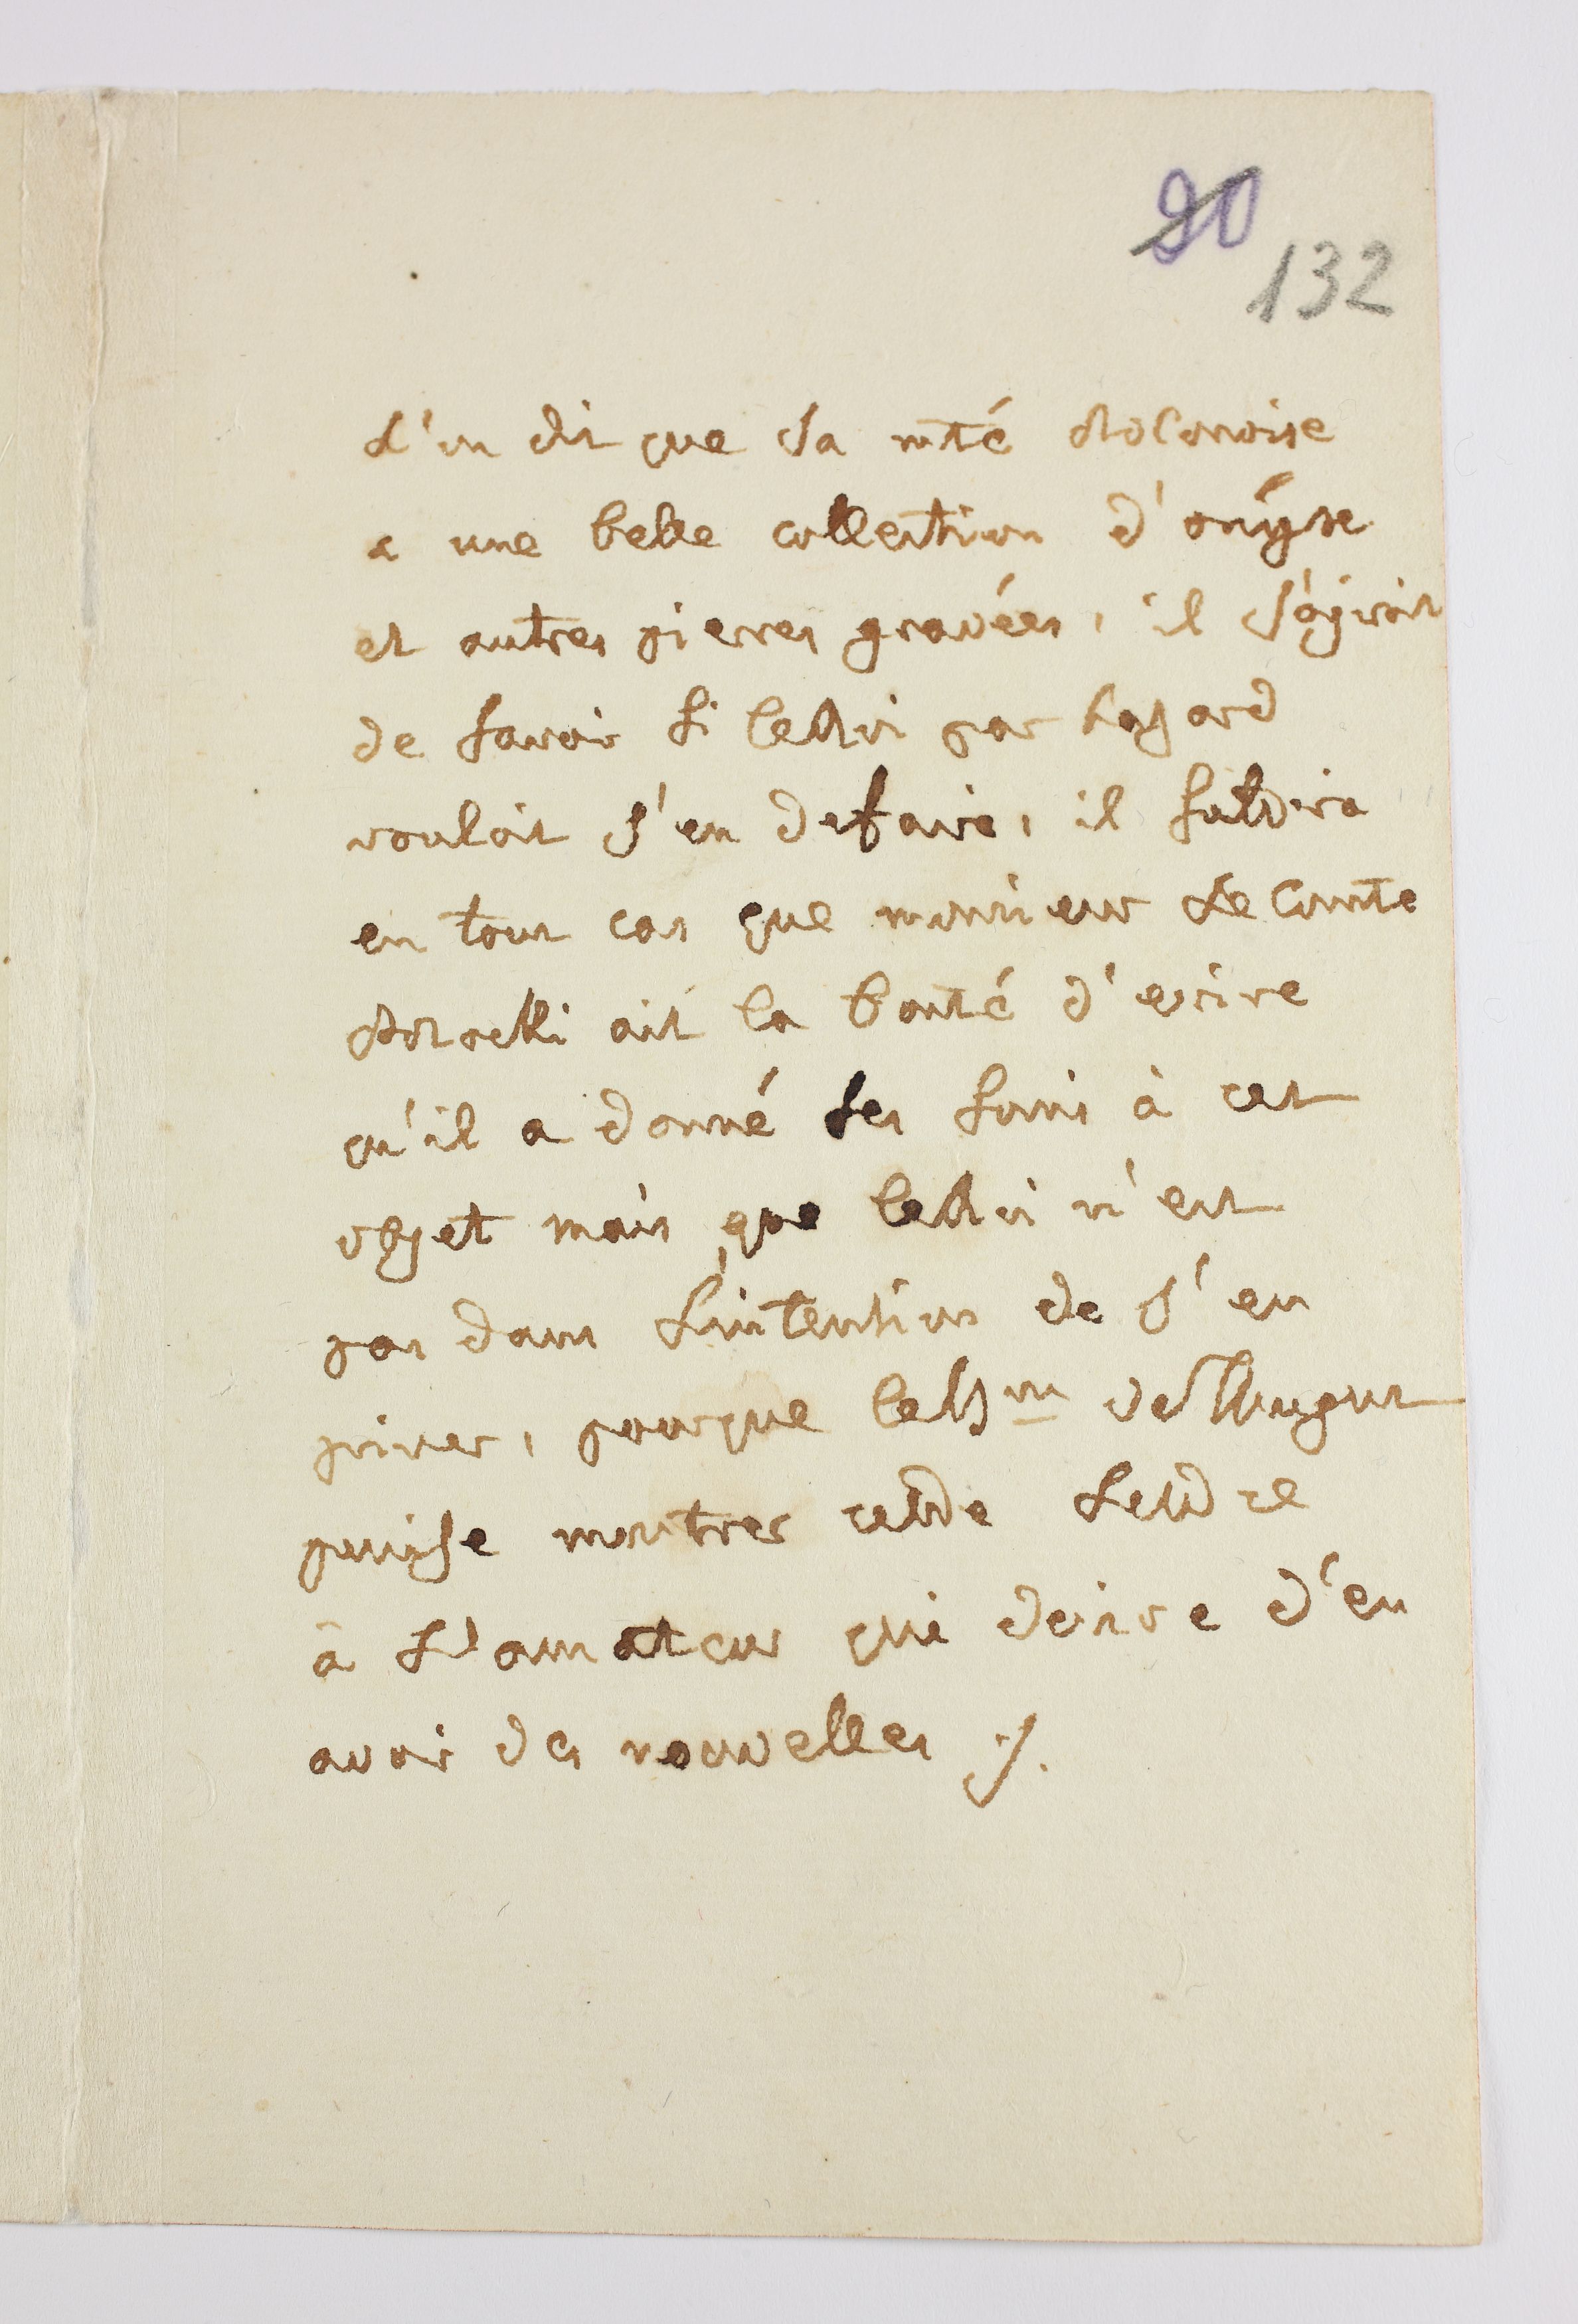 90
132
L'on dit que Sa mté Polonoise
a une belle collection d'onÿxe
et autres pierres gravées, il s'agiroit
de savoir si le Roi par hazard
vouloit s'en defaire, il faudra
en tout cas que monsieur Le Comte
ait la bonté d'ecrire
qu'il a donné ses soins à cet
objet mais que le Roi n'est
pas dans L'intention de s'en
priver, pour que le Bon de Thugut
puisse montrer cette Lettre
à L'amateur qui desire d'en
avoir des nouvelles ./.